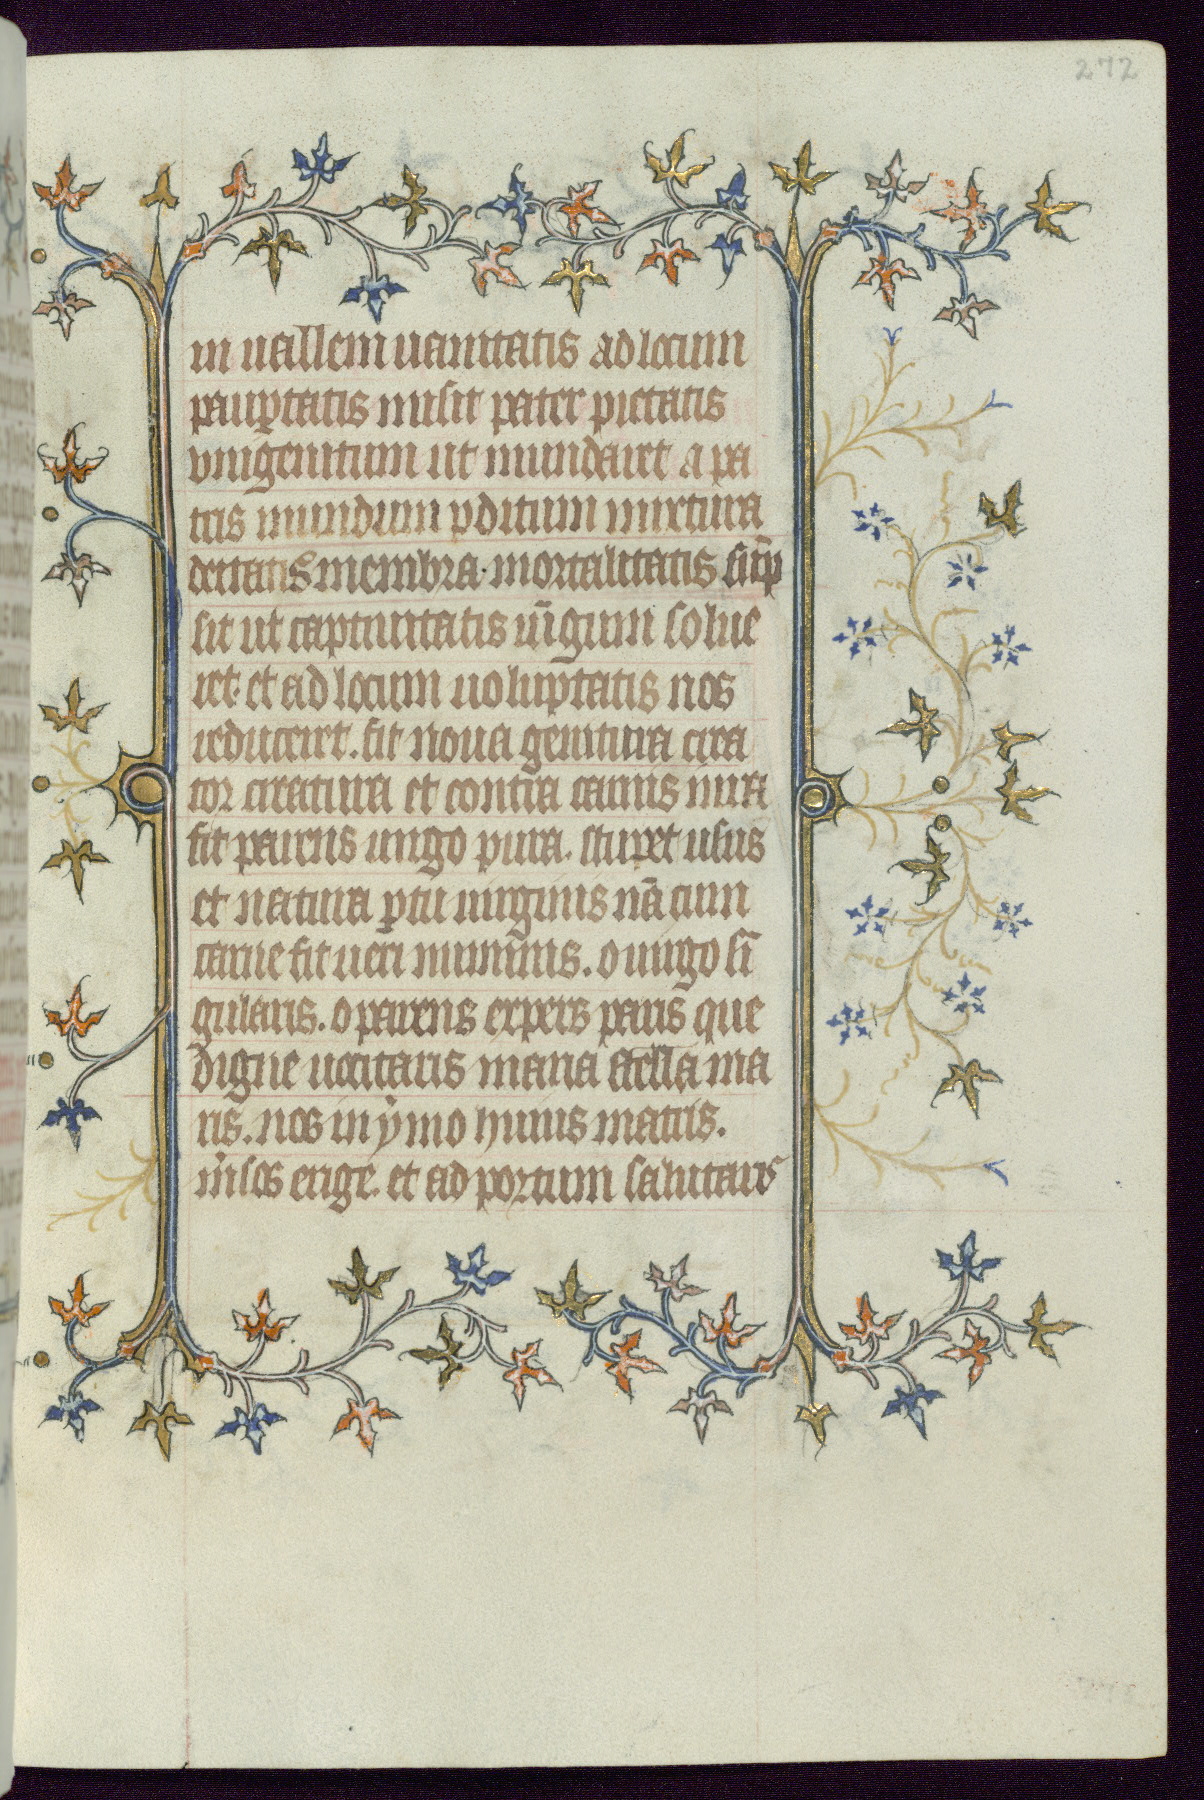 272
in uallem uanitatis ad locum
paup̱tatis misit pater pietatis
vnigenitum ut mundaret a pa
tris mundum p̱ditum mixtura
deitatis membra. mortalitatis sūp
sit ut captiuitatis iūgum solue
ret. et ad locum uoluptatis nos
reduceret. fit noua genitura crea
tor creatura et contra carnis iura
fit parens uirgo pura. stupet usus
et natura p̱tū uirginis nā cum
carne fit ueri numinis. o uirgo sī
gularis. o parens expers paris que
digne uocitaris maria stella ma
ris. nos in ymo huius matris.
m̄sos erige. et ad portum salutaris